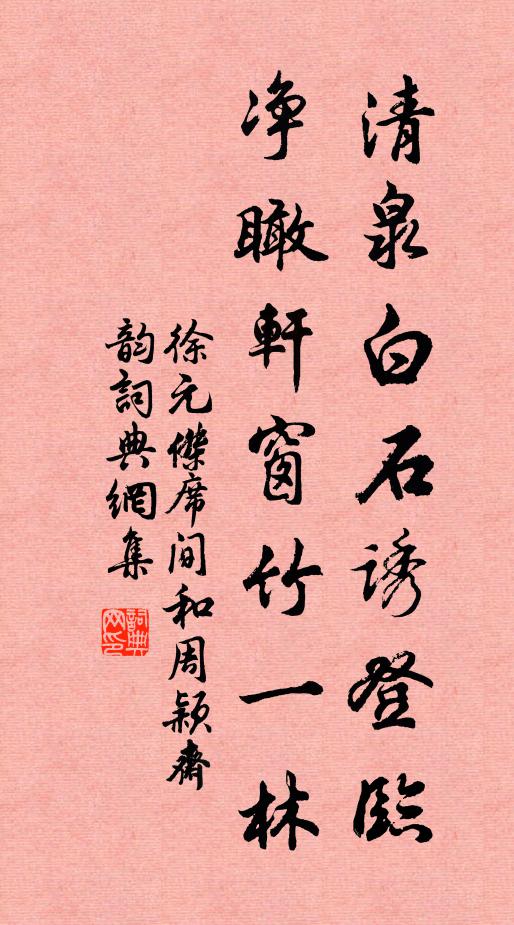 清泉白石誘登臨
净瞰軒窗竹一林
徐元傑席间和周颖齋
韵詞典網集
詞典網印